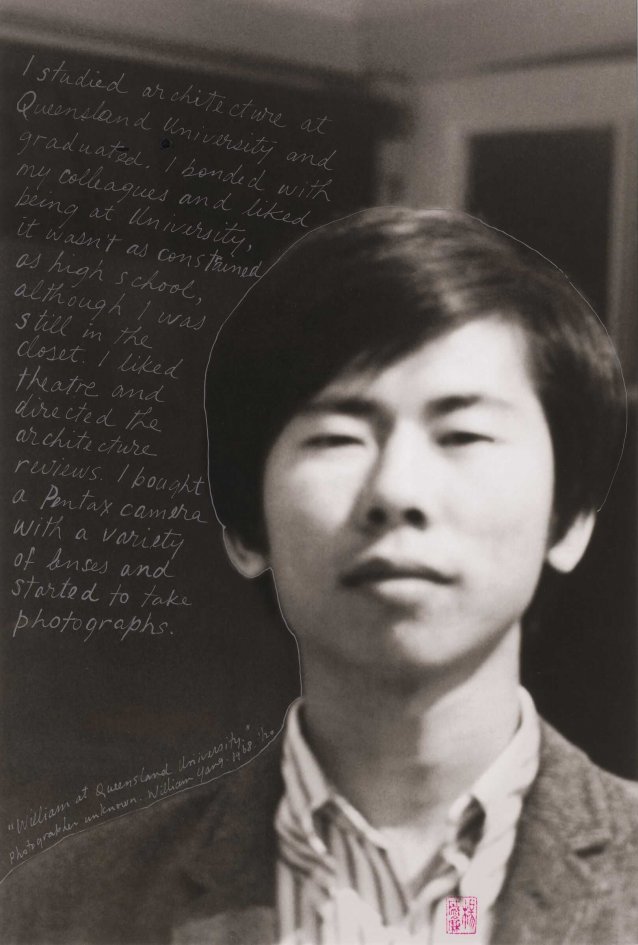 I studied architecture at
Queensland University and
graduated. I bonded with
my colleagues and liked
being at University,
it wasn't as constrained
as high school,
although I was
still in the
closet. I liked
theatre and
directed the
architecture
reviews. I bought
a Pentax camera
with a variety
of lenses and
started to take
photographs.
"William at Queensland University."
Photographer unknown. William Yang. 1968.